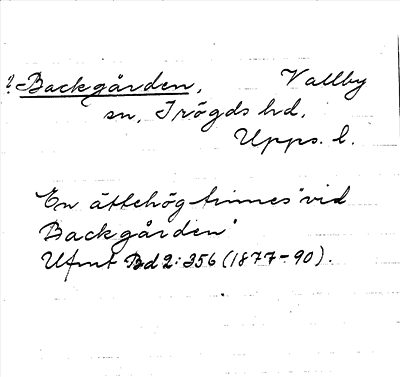 ? Backgården, Vallby
sn, Trögds hd,
Upps. l.
En ättehög finnes "vid
Backgården"
Ufmt Bd 2: 356 (1877-90).